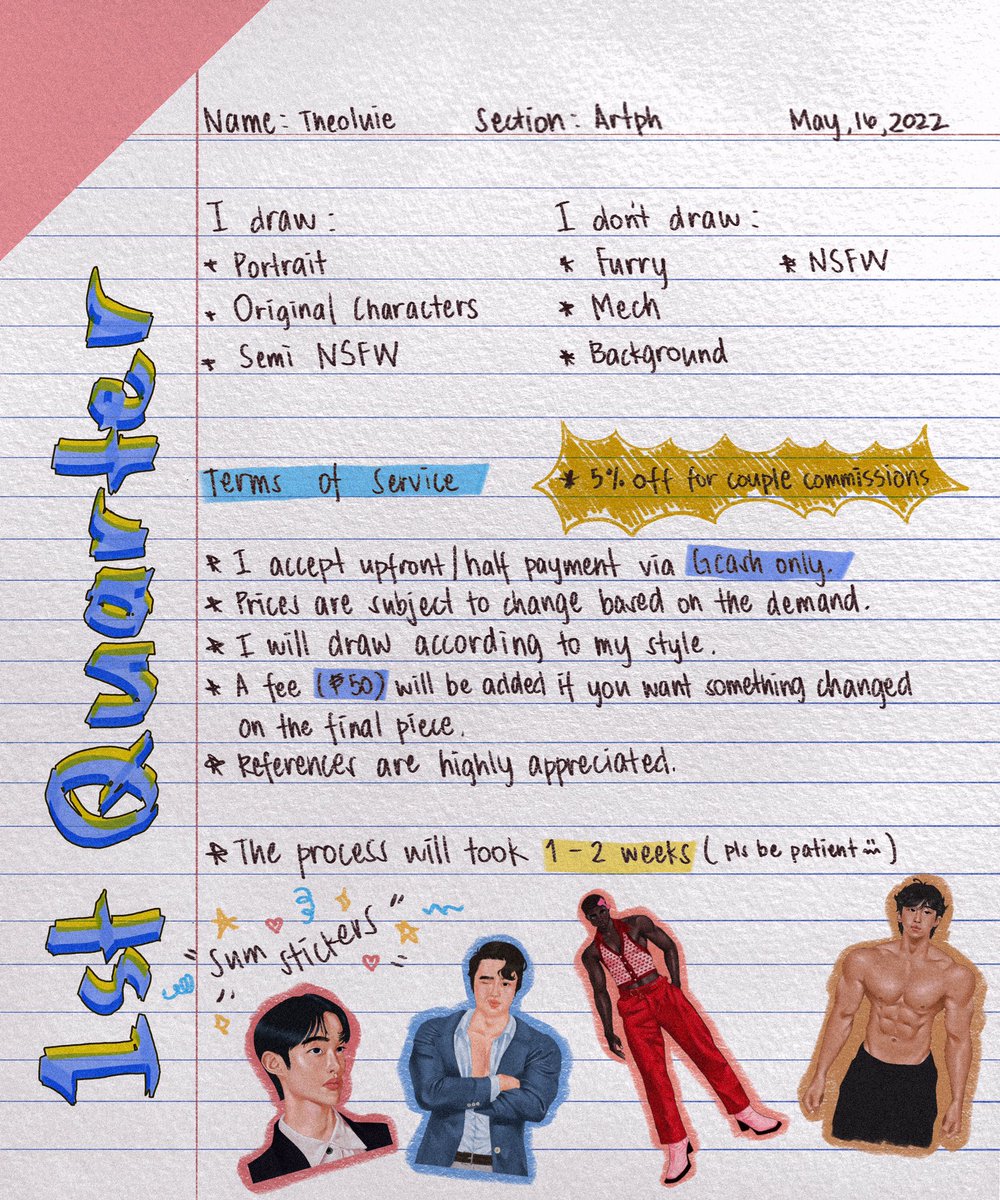 Name: Theoluie Section: Artph May, 16, 2022
I draw: I don't draw:
* Portrait * Furry * NSFW
* Original Characters * Mech
* Semi NSFW * Background
Terms of Service * 5% off for couple commissions
* I accept upfront/half payment via Gcash only.
* Prices are subject to change based on the demand.
* I will draw according to my style.
* A fee (₱50) will be added if you want something changed
on the final piece.
* References are highly appreciated.
* The process will took 1-2 weeks (pls be patient :))
"Sum stickers"
1st Quarter